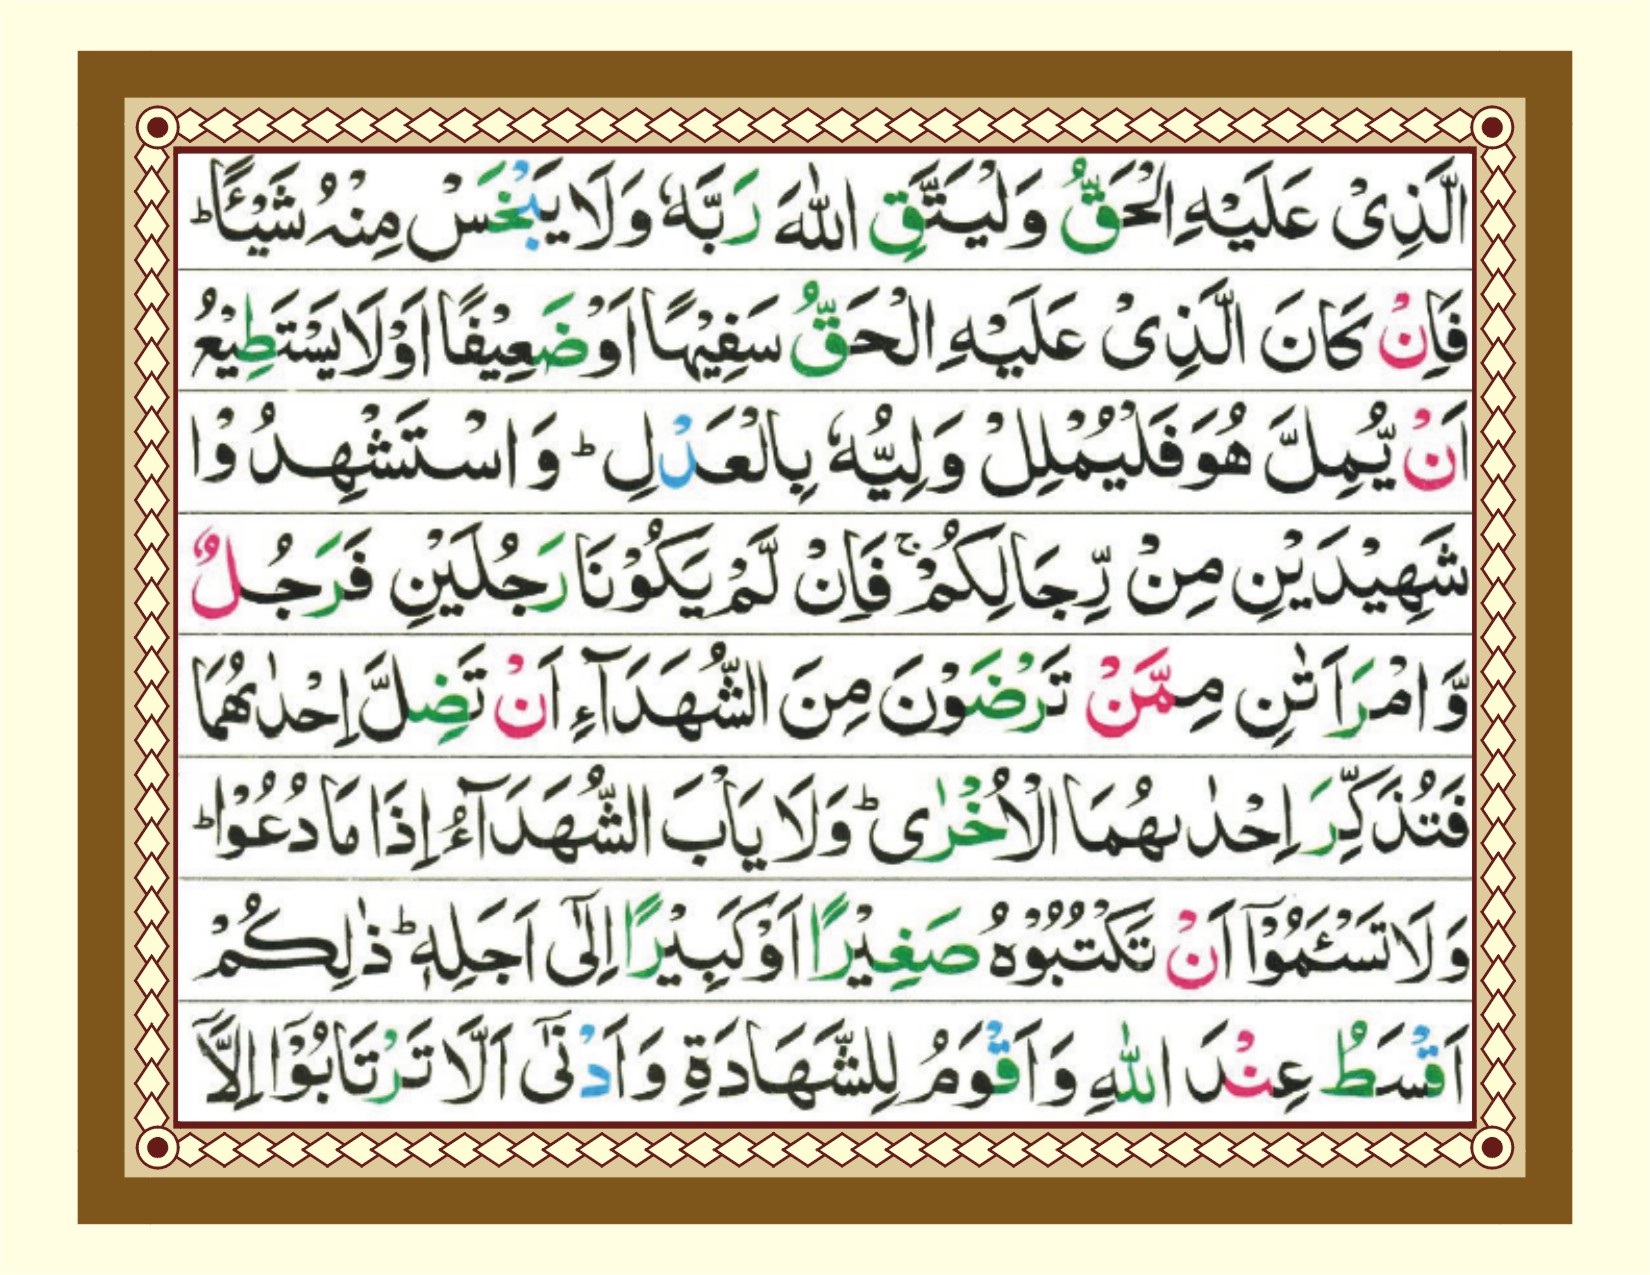 الَّذِیْ عَلَیْهِ الْحَقُّ وَلْیَتَّقِ اللّٰهَ رَبَّهٗ وَلَا یَبْخَسْ مِنْهُ شَیْـًٔا ؕ
فَاِنْ كَانَ الَّذِیْ عَلَیْهِ الْحَقُّ سَفِیْهًا اَوْ ضَعِیْفًا اَوْ لَا یَسْتَطِیْعُ
اَنْ یُّمِلَّ هُوَ فَلْیُمْلِلْ وَلِیُّهٗ بِالْعَدْلِ ؕ وَاسْتَشْهِدُوْا
شَهِیْدَیْنِ مِنْ رِّجَالِكُمْ ۚ فَاِنْ لَّمْ یَكُوْنَا رَجُلَیْنِ فَرَجُلٌ
وَّامْرَاَتٰنِ مِمَّنْ تَرْضَوْنَ مِنَ الشُّهَدَآءِ اَنْ تَضِلَّ اِحْدٰىهُمَا
فَتُذَكِّرَ اِحْدٰىهُمَا الْاُخْرٰی ؕ وَلَا یَاْبَ الشُّهَدَآءُ اِذَا مَا دُعُوْا ؕ
وَلَا تَسْـَٔمُوْۤا اَنْ تَكْتُبُوْهُ صَغِیْرًا اَوْ كَبِیْرًا اِلٰۤی اَجَلِهٖ ؕ ذٰلِكُمْ
اَقْسَطُ عِنْدَ اللّٰهِ وَاَقْوَمُ لِلشَّهَادَةِ وَاَدْنٰۤی اَلَّا تَرْتَابُوْۤا اِلَّاۤ